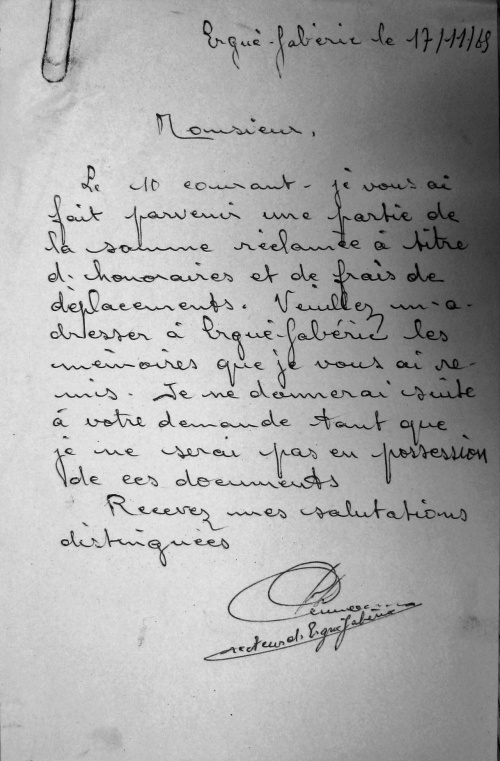 Ergué-Gabéric le 17/11/69
Monsieur,
Le 10 courant - je vous ai
fait parvenir une partie de
la somme réclamée à titre
d'honoraires et de frais de
déplacements. Veuillez m'a-
dresser à Ergué-Gabéric les
mémoires que je vous ai re-
mis. Je ne donnerai suite
à votre demande tant que
je ne serai pas en possession
de ces documents
Recevez mes salutations
distinguées
recteur d'Ergué-Gabéric